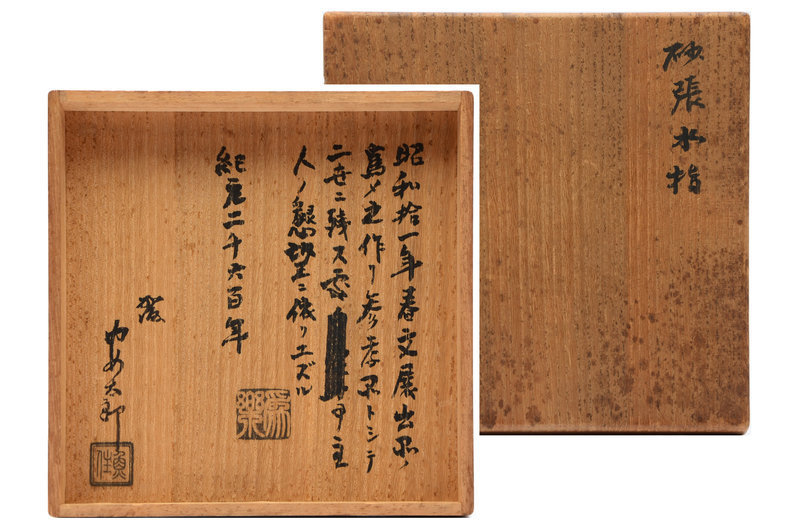 砂張水指
昭和拾一年春文展出品
為メ之作リ参考品トシテ
二世ニ残ス處 主
人ノ懇望ニ依リユズル
紀元二千六百年
爲樂
太郎
魚住